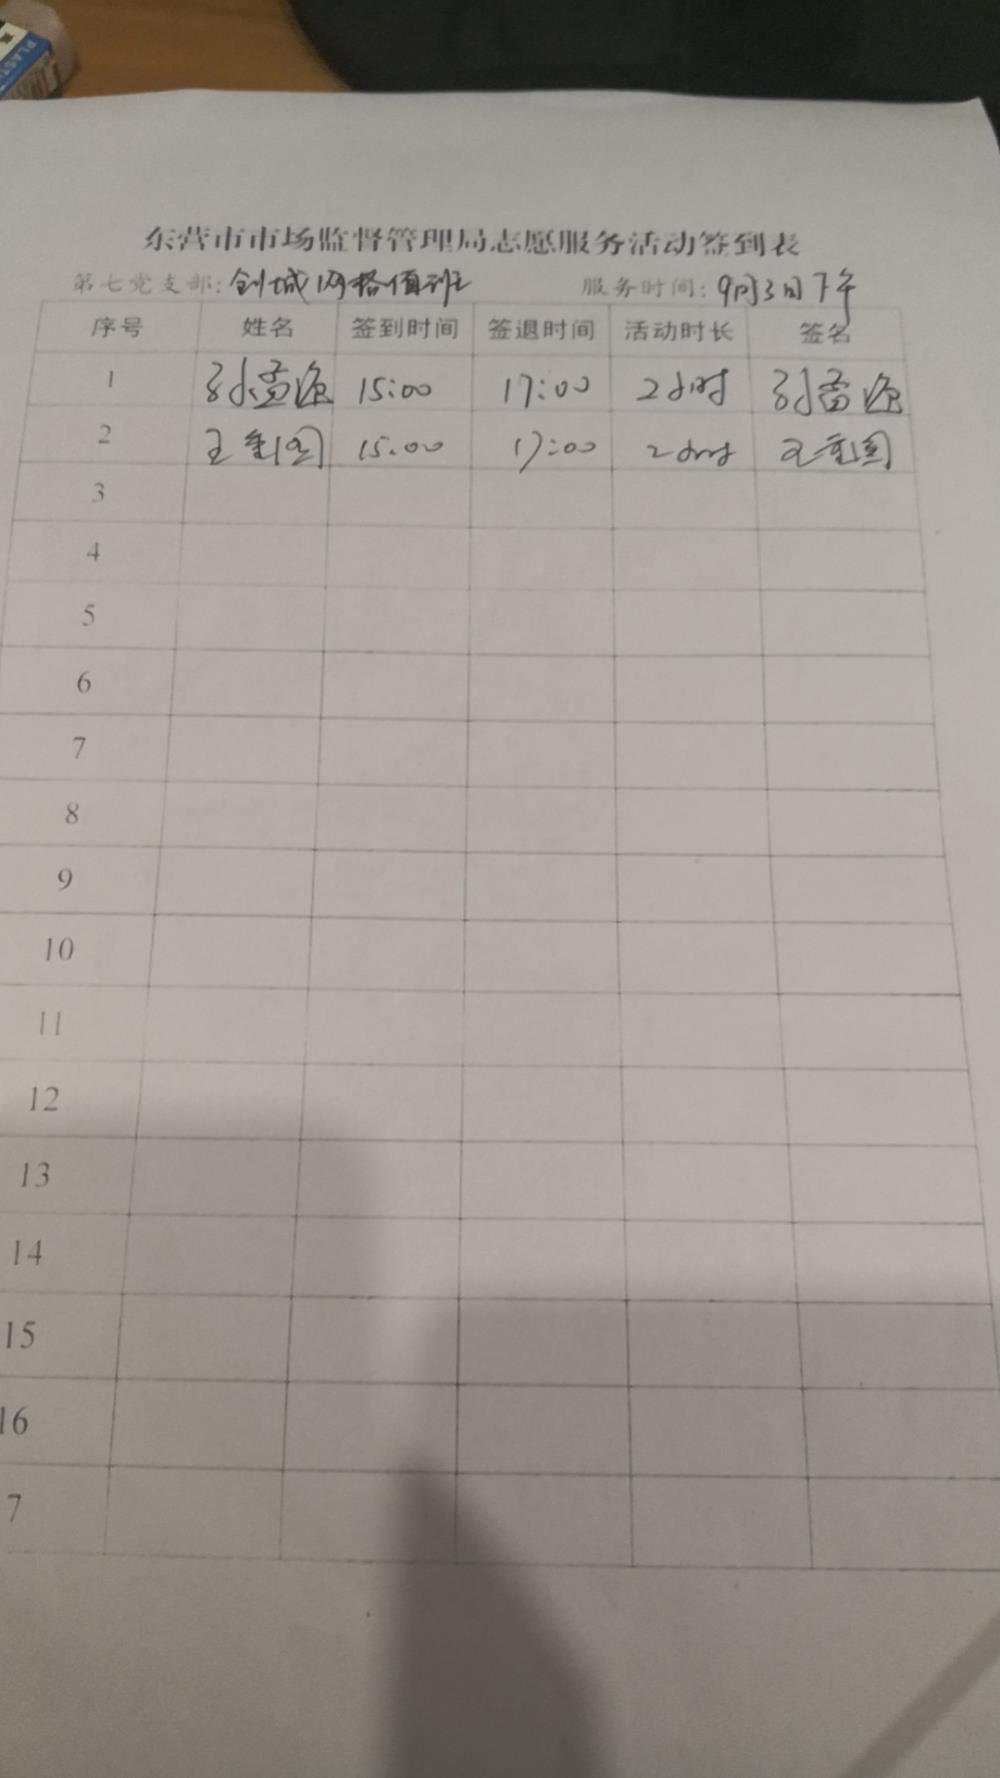 PLAST
东营市市场监督管理局志愿服务活动签到表
第七党支部:创城网格值班 服务时间:9月3日下午
序号 姓名 签到时间 签退时间 活动时长 签名
1 15:00 17:00 2小时
2 王重国 15:00 17:00 2小时 王重国
3
4
5
6
7
8
9
10
11
12
13
14
15
16
7